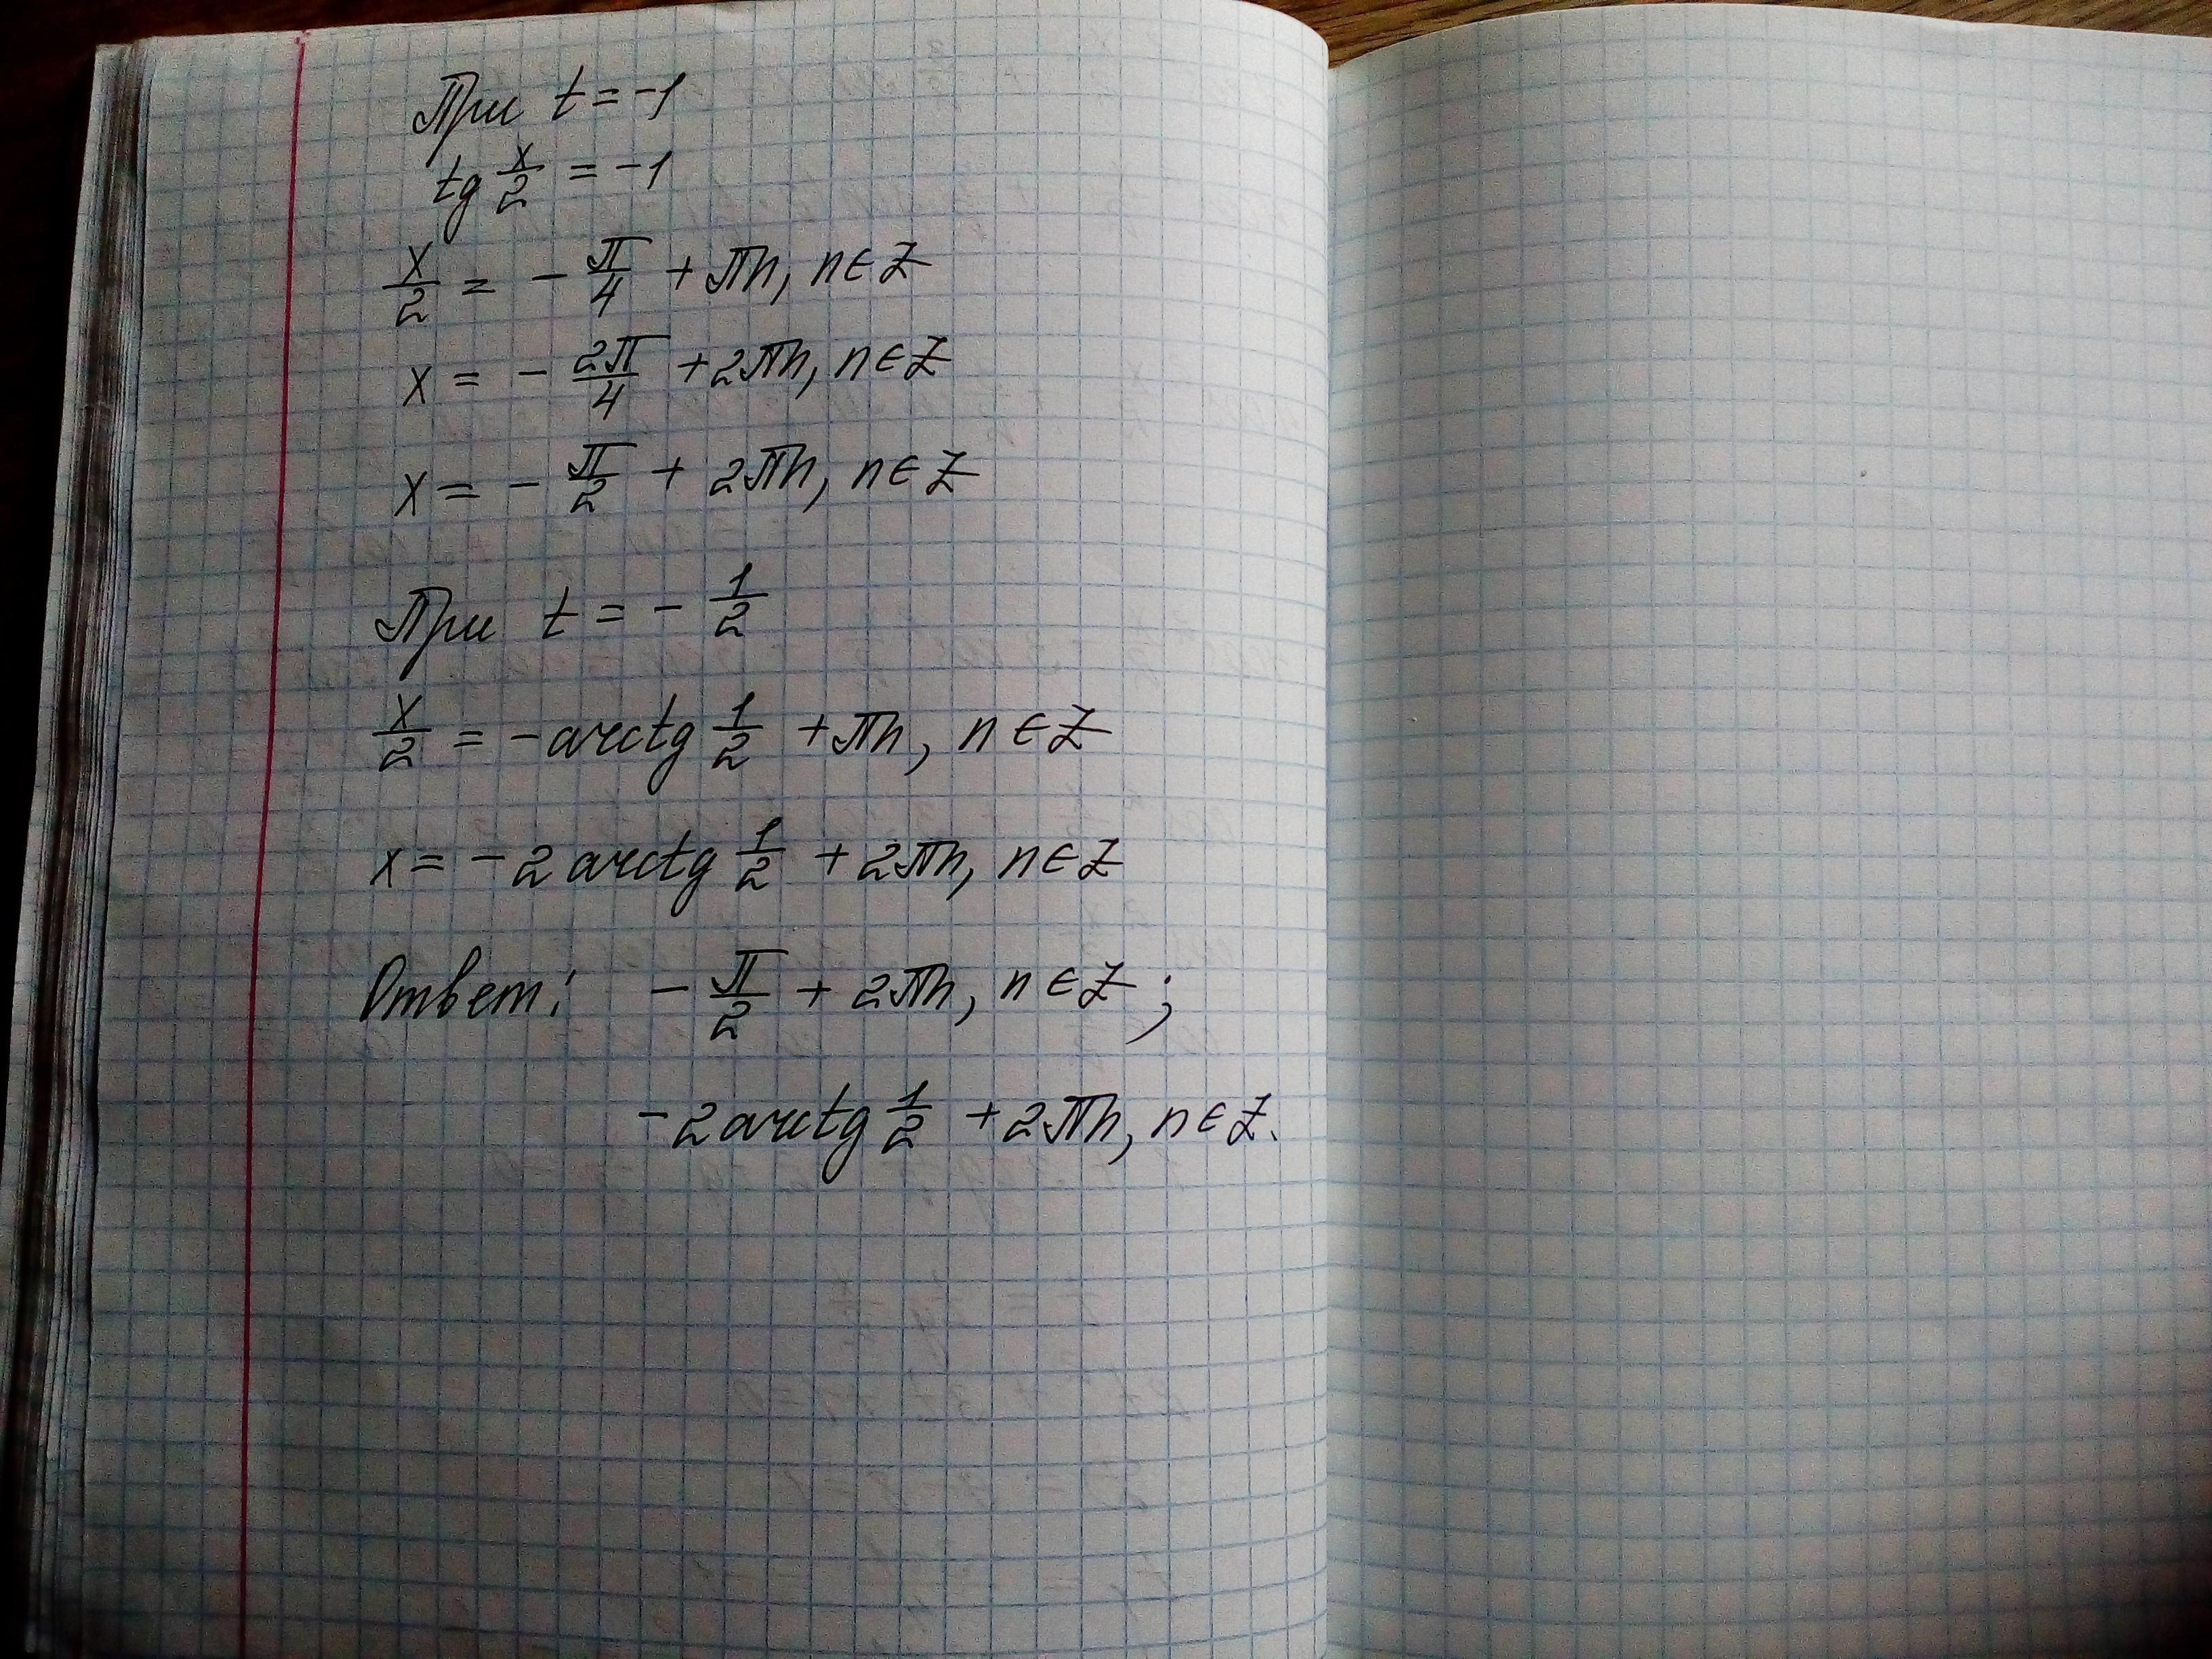 При t = -1
tg x/2 = -1
x/2 = - π/4 + πn, n ∈ Z
x = - 2π/4 + 2πn, n ∈ Z
x = - π/2 + 2πn, n ∈ Z
При t = - 1/2
x/2 = -arctg 1/2 + πn, n ∈ Z
x = -2 arctg 1/2 + 2πn, n ∈ Z
Ответ: - π/2 + 2πn, n ∈ Z;
-2 arctg 1/2 + 2πn, n ∈ Z.